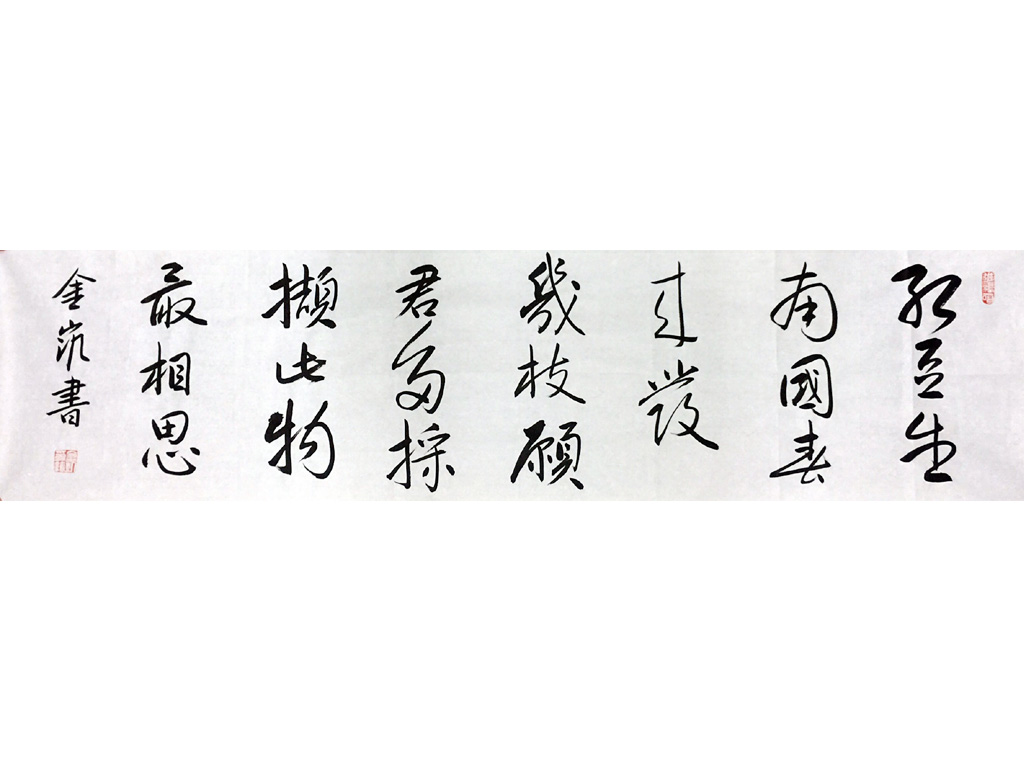 紅豆生
南國春
來發
幾枝願
君多採
擷此物
最相思
金 書